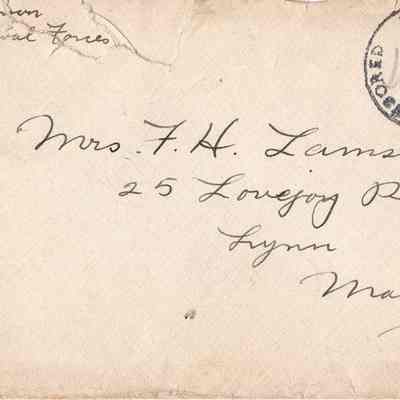 Forces
SORED
Mrs. F. H. Lams
25 Lovejoy R
Lynn
Ma